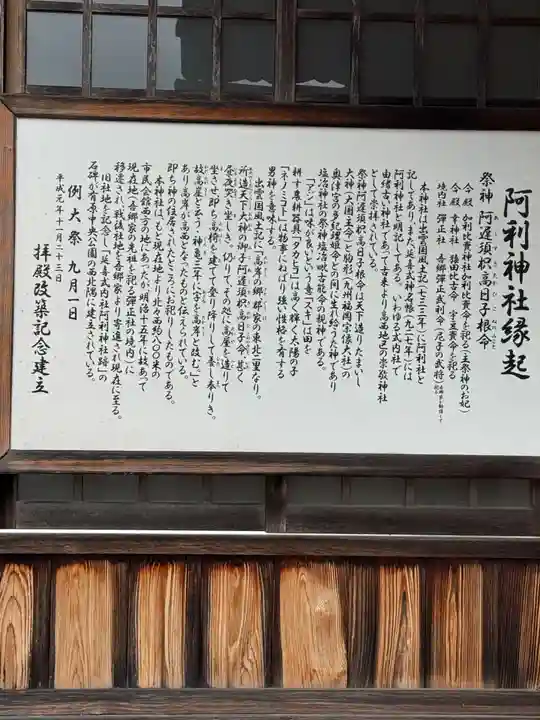 阿利神社縁起
祭神 阿遅須枳高日子根命
合殿 加利比賣神社加利比賣命を祀る(主祭神のお妃)
合殿 幸神社 猿田比古命 宇豆賣命を祀る
境内社 彈正社 吾郷彈正武利命(尼子の武将)
本神社は出雲国風土記(七三三年)に阿利社と
記してあり、また延喜式神名帳(九二七年)には
阿利神社と明記してある。いわゆる式内社で
由緒古い神社であって古来より高西地區の崇敬神社
として崇拝されている。
祭神阿遅須枳高日子根命は天下造りたまいし
大神(大国主命)と胸形(九州福岡宗像大社)の
奥津宮の多紀理姫命との間に生れ給うた神であり
塩冶神社の祭神塩冶毗古能命の親神である。
「アジ」は味が良いで立派な意「スキ」は田を
耕す農耕器具「タカヒコ」は高く輝く太陽の子
「ネノミコト」は物事にねばり強い性格を有する
男神を意味する。
出雲国風土記に「高岸の郷、郡家の東北二里なり。
所造天下大神の御子阿遅須枳高日子命、甚く
昼夜哭き坐しき、仍りてその処に高屋を造りて
坐させ即ち高椅を建てて登り降りして養し奉りき。
故高崖と云う。神亀三年に字を高岸と改む。」と
あり高岸が高西となったものと伝えられている。
即ち神の住居されたところにお祀りしたものである。
本神社は、もと現在地より北々西約八〇〇米の
市民会館西方の地にあったが明治十五年にはあって
現在地(吾郷家の先祖を祀る彈正社の境内)に
移遷され、戦後社地を吾郷家より寄進され現在に至る。
旧社地を記念し「延喜式内社阿利神社跡」の
石碑が有原中央公園の西北隅に建立されている。
例大祭 九月一日
平成元年十一月二十三日
拝殿改築記念建立